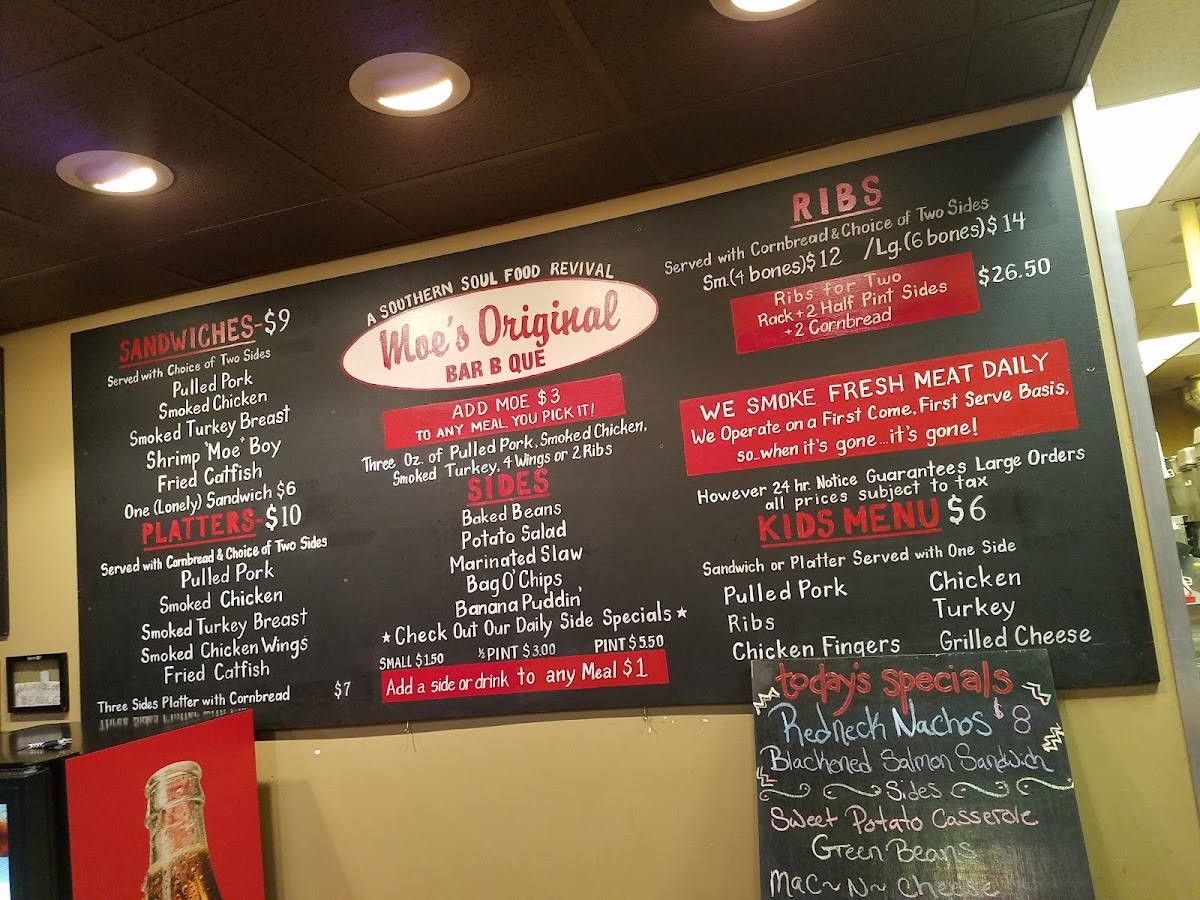 SANDWICHES-$9
Served with Choice of Two Sides
Pulled Pork
Smoked Chicken
Smoked Turkey Breast
Shrimp "Moe" Boy
Fried Catfish
One (Lonely) Sandwich $6
PLATTERS-$10
Served with Cornbread & Choice of Two Sides
Pulled Pork
Smoked Chicken
Smoked Turkey Breast
Smoked Chicken Wings
Fried Catfish
Three Sides Platter with Cornbread $7
A SOUTHERN SOUL FOOD REVIVAL
Moe's Original
BAR B QUE
ADD MOE $3
TO ANY MEAL, YOU PICK IT!
Three Oz. of Pulled Pork, Smoked Chicken,
Smoked Turkey, 4 Wings or 2 Ribs
SIDES
Baked Beans
Potato Salad
Marinated Slaw
Bag O' Chips
Banana Puddin'
★ Check Out Our Daily Side Specials ★
SMALL $1.50 ½ PINT $3.00 PINT $5.50
Add a side or drink to any Meal $1
RIBS
Served with Cornbread & Choice of Two Sides
Sm.(4 bones)$12 /Lg.(6 bones)$14
Ribs for Two
Rack + 2 Half Pint Sides
+2 Cornbread
$26.50
WE SMOKE FRESH MEAT DAILY
We Operate on a First Come, First Serve Basis,
so...when it's gone...it's gone!
However 24 hr. Notice Guarantees Large Orders
all prices subject to tax
KIDS MENU $6
Sandwich or Platter Served with One Side
Pulled Pork Chicken
Ribs Turkey
Chicken Fingers Grilled Cheese
today's specials
Redneck Nachos $8
Blackened Salmon Sandwich
Sides
Sweet Potato Casserole
Green Beans
Mac~N~Cheese